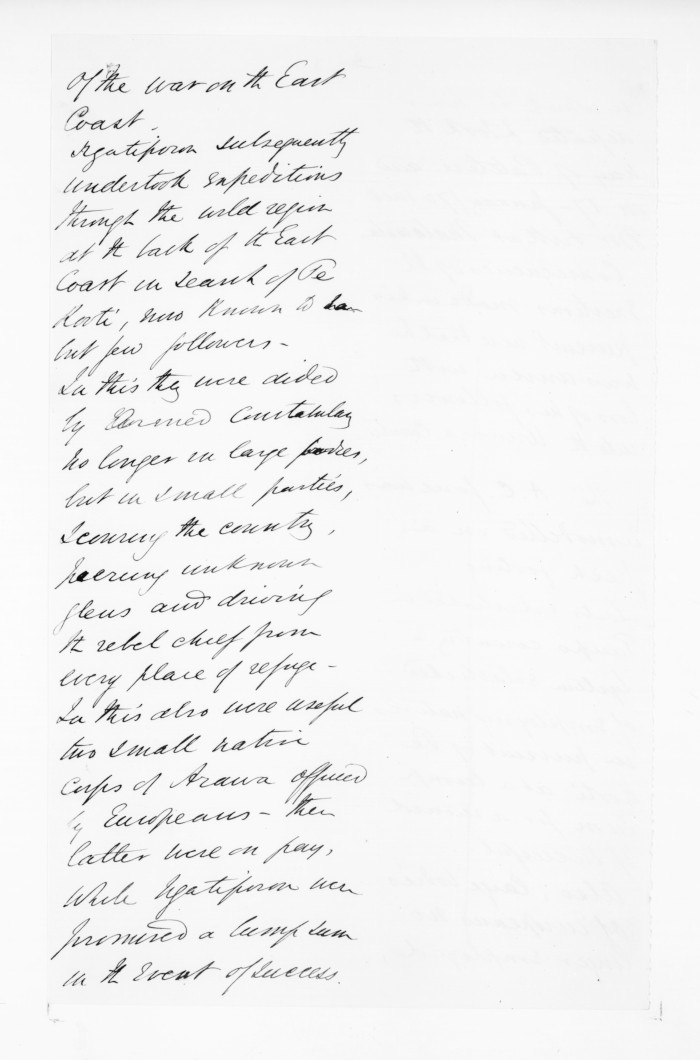 of the war on th East
Coast.
Ngatiporou subsequently
undertook expeditions
through the wild region
at th back of th East
Coast in search of Te
Kooti, now known to have
but few followers -
In this they were aided
by Armed Constabulary
no longer in large bodies,
but in small parties,
scouring the country,
piercing unknown
glens and driving
th rebel chief from
every place of refuge -
In this also were useful
two small native
corps of Arawa officered
by Europeans - these
latter were on pay,
while Ngatiporou were
promised a lump sum
in th event of success.